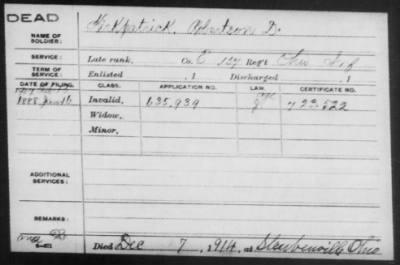 DEAD
NAME OF SOLDIER: Kirkpatrick, Robertson D.
SERVICE: Late rank, Co. E 157 Reg't Ohio Inf
TERM OF SERVICE: Enlisted , 1 Discharged , 1
DATE OF FILING. CLASS. APPLICATION NO. LAW. CERTIFICATE NO.
1888 Invalid, 635.939 723.522
Widow,
Minor,
ADDITIONAL SERVICES:
REMARKS:
Died Dec 7, 1914, at Steubenville Ohio